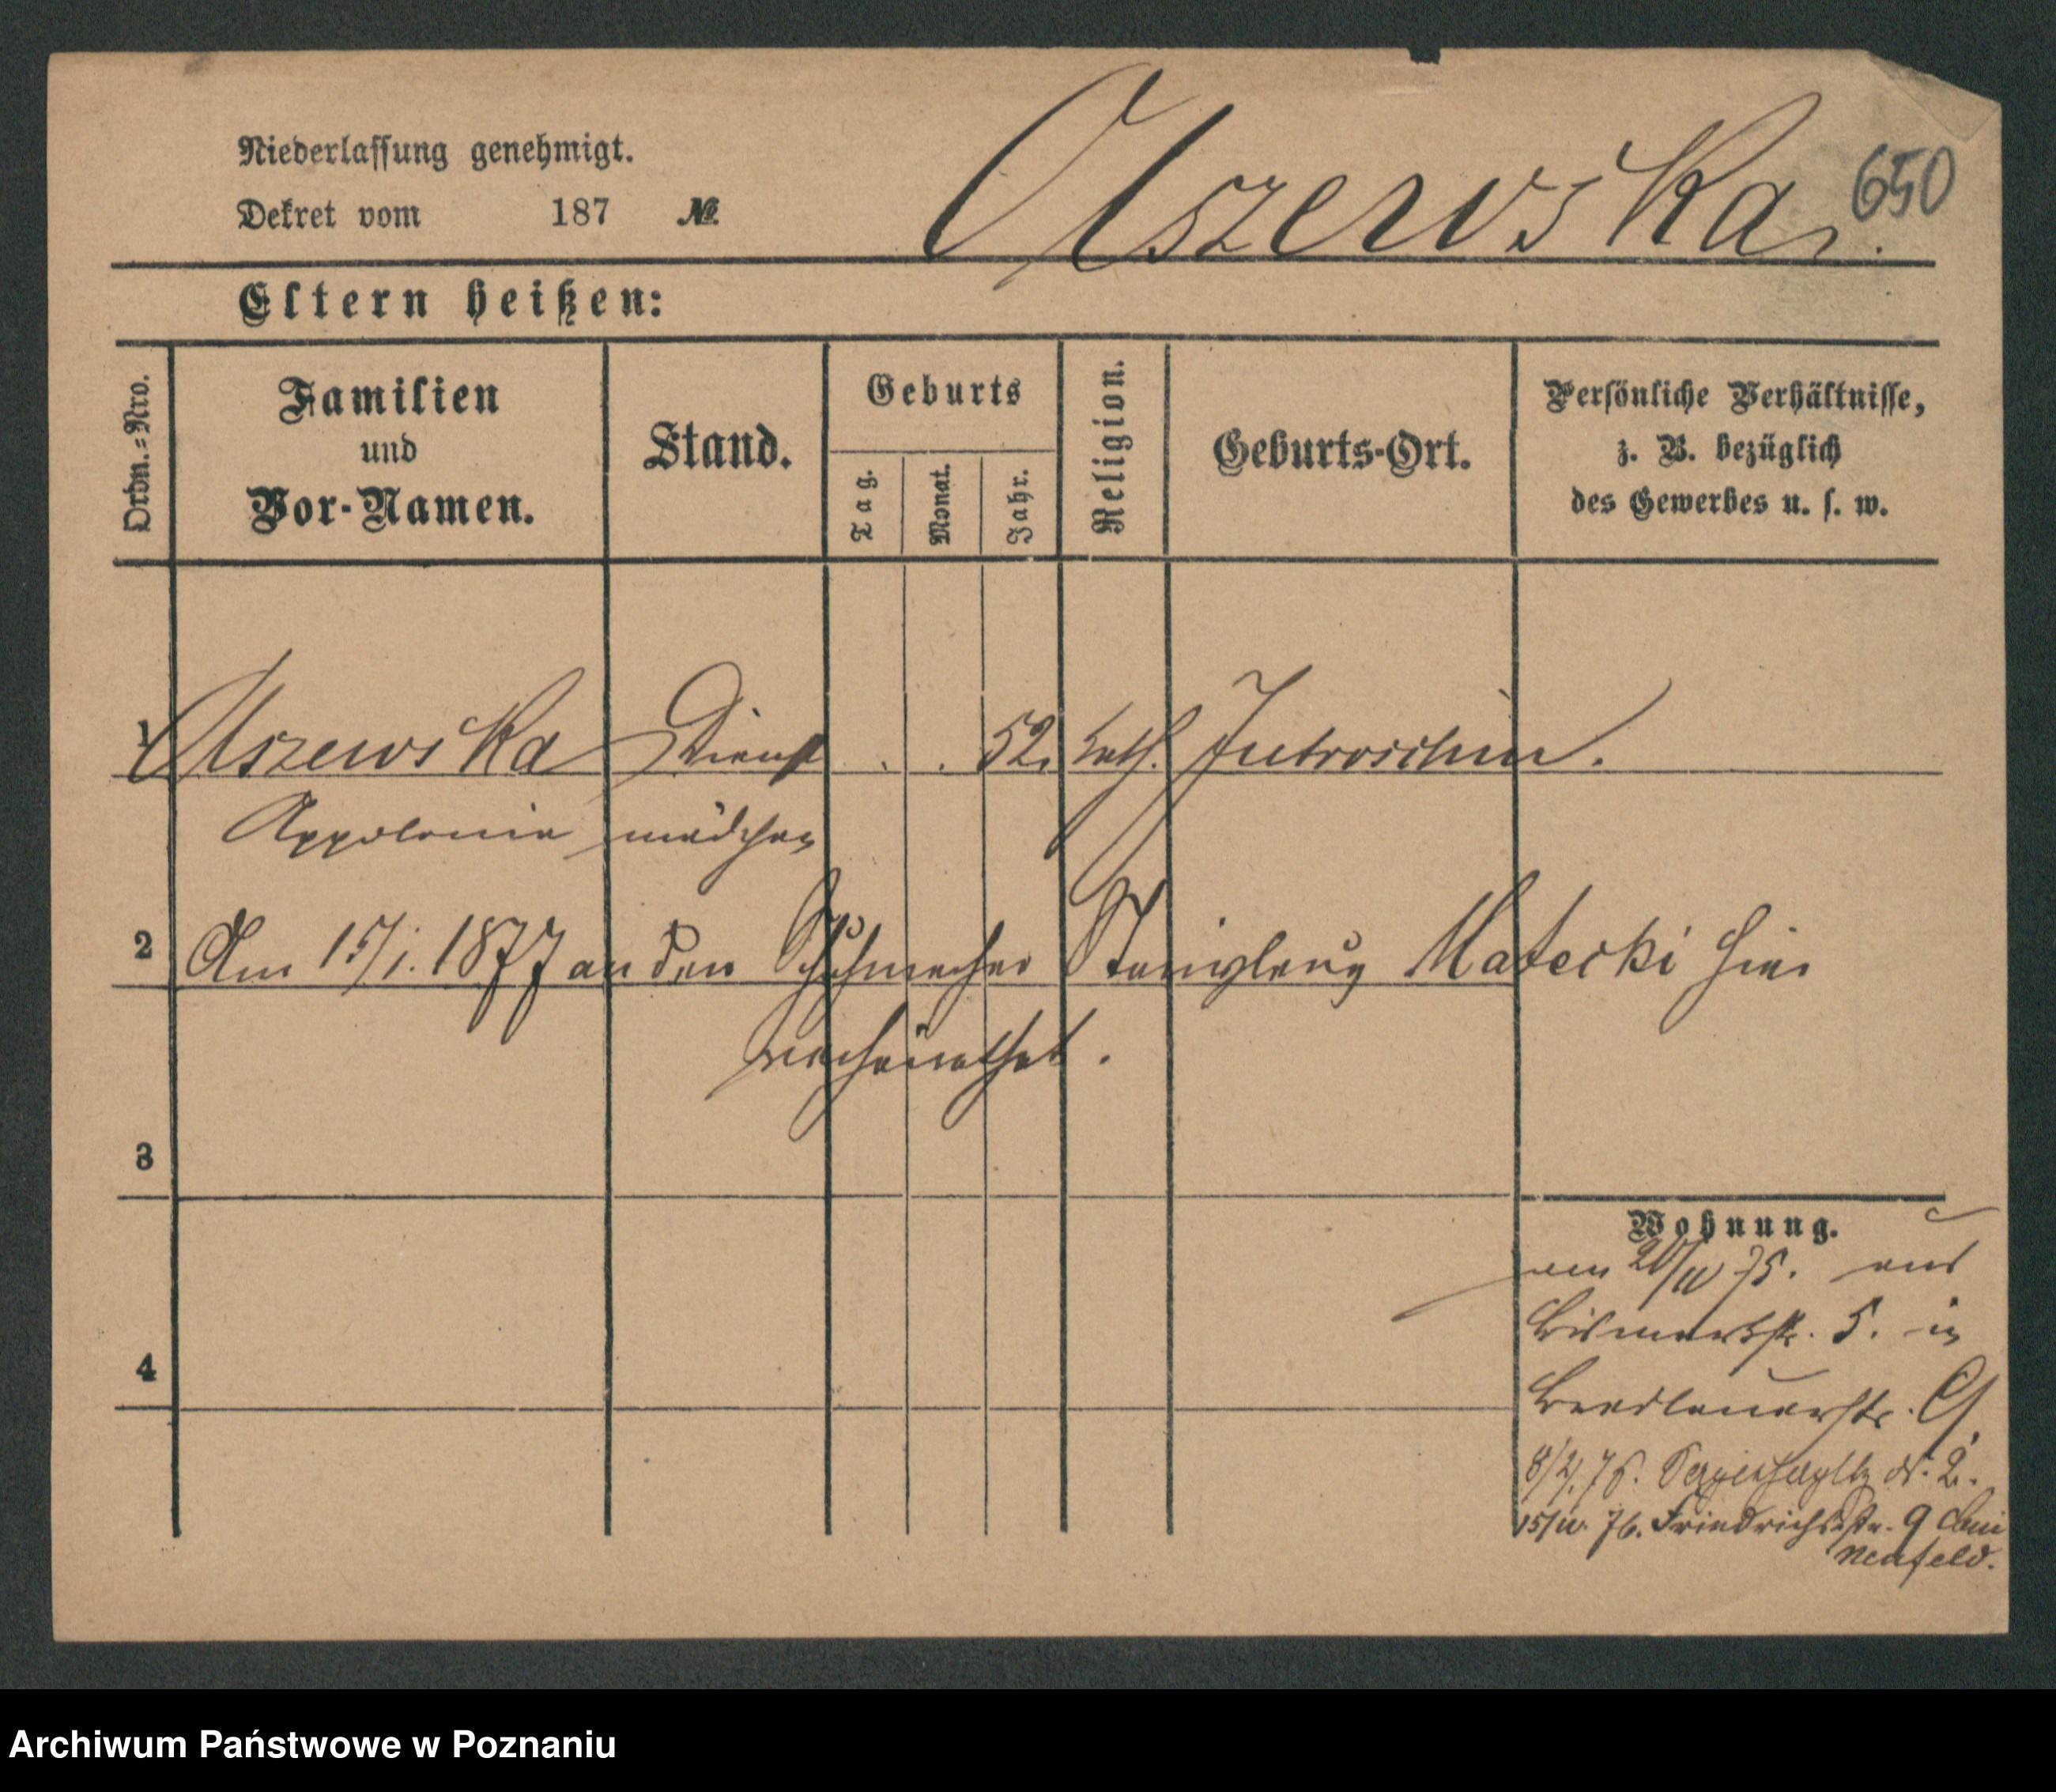 Niederlassung genehmigt.
Dekret vom 187 №
Olszewska.
650
Eltern heißen:
Ordn.=Nro.
Familien
und
Vor-Namen.
Stand.
Geburts
Tag.
Monat.
Jahr.
Religion.
Geburts-Ort.
Persönliche Verhältnisse,
z. B. bezüglich
des Gewerbes u. s. w.
1 Olszewska Dienst . . 52. kath. Jutroschin.
Appolonia mädchen
2 Am 15/1. 1877 an den Schuhmacher Stanislaus Matecki hier
verheirathet.
3
Wohnung.
75. aus
Bismarkstr. 5. in
4
Breslauerstr. 9.
8/2. 76. 2.
76. Friedrichsstr. 9 bei
Neufeld.
Archiwum Państwowe w Poznaniu